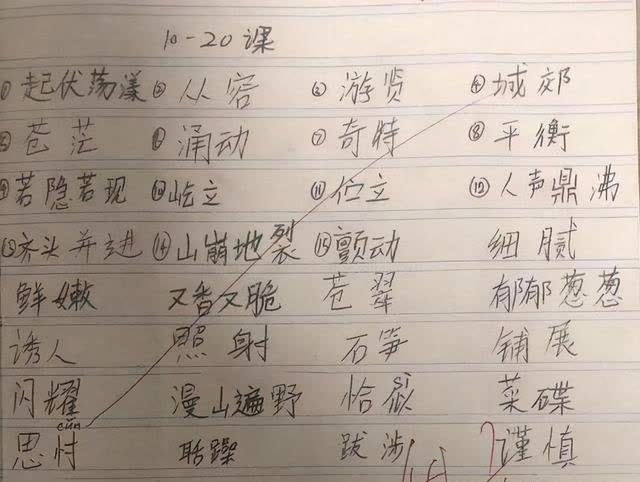 10-20课
①起伏荡漾 ②从容 ③游贤 ④城郊
⑤苍茫 ⑥涌动 ⑦奇特 ⑧平衡
⑨若隐若现 ⑩屹立 ⑪伫立 ⑫人声鼎沸
⑬齐头并进 ⑭山崩地裂 ⑮颤动 细腻
鲜嫩 又香又脆 苍翠 郁郁葱葱
诱人 照射 石笋 铺展
sì
闪耀 漫山遍野 恰似 菜碟
cǔn
思忖 聒躁 跋涉 谨慎